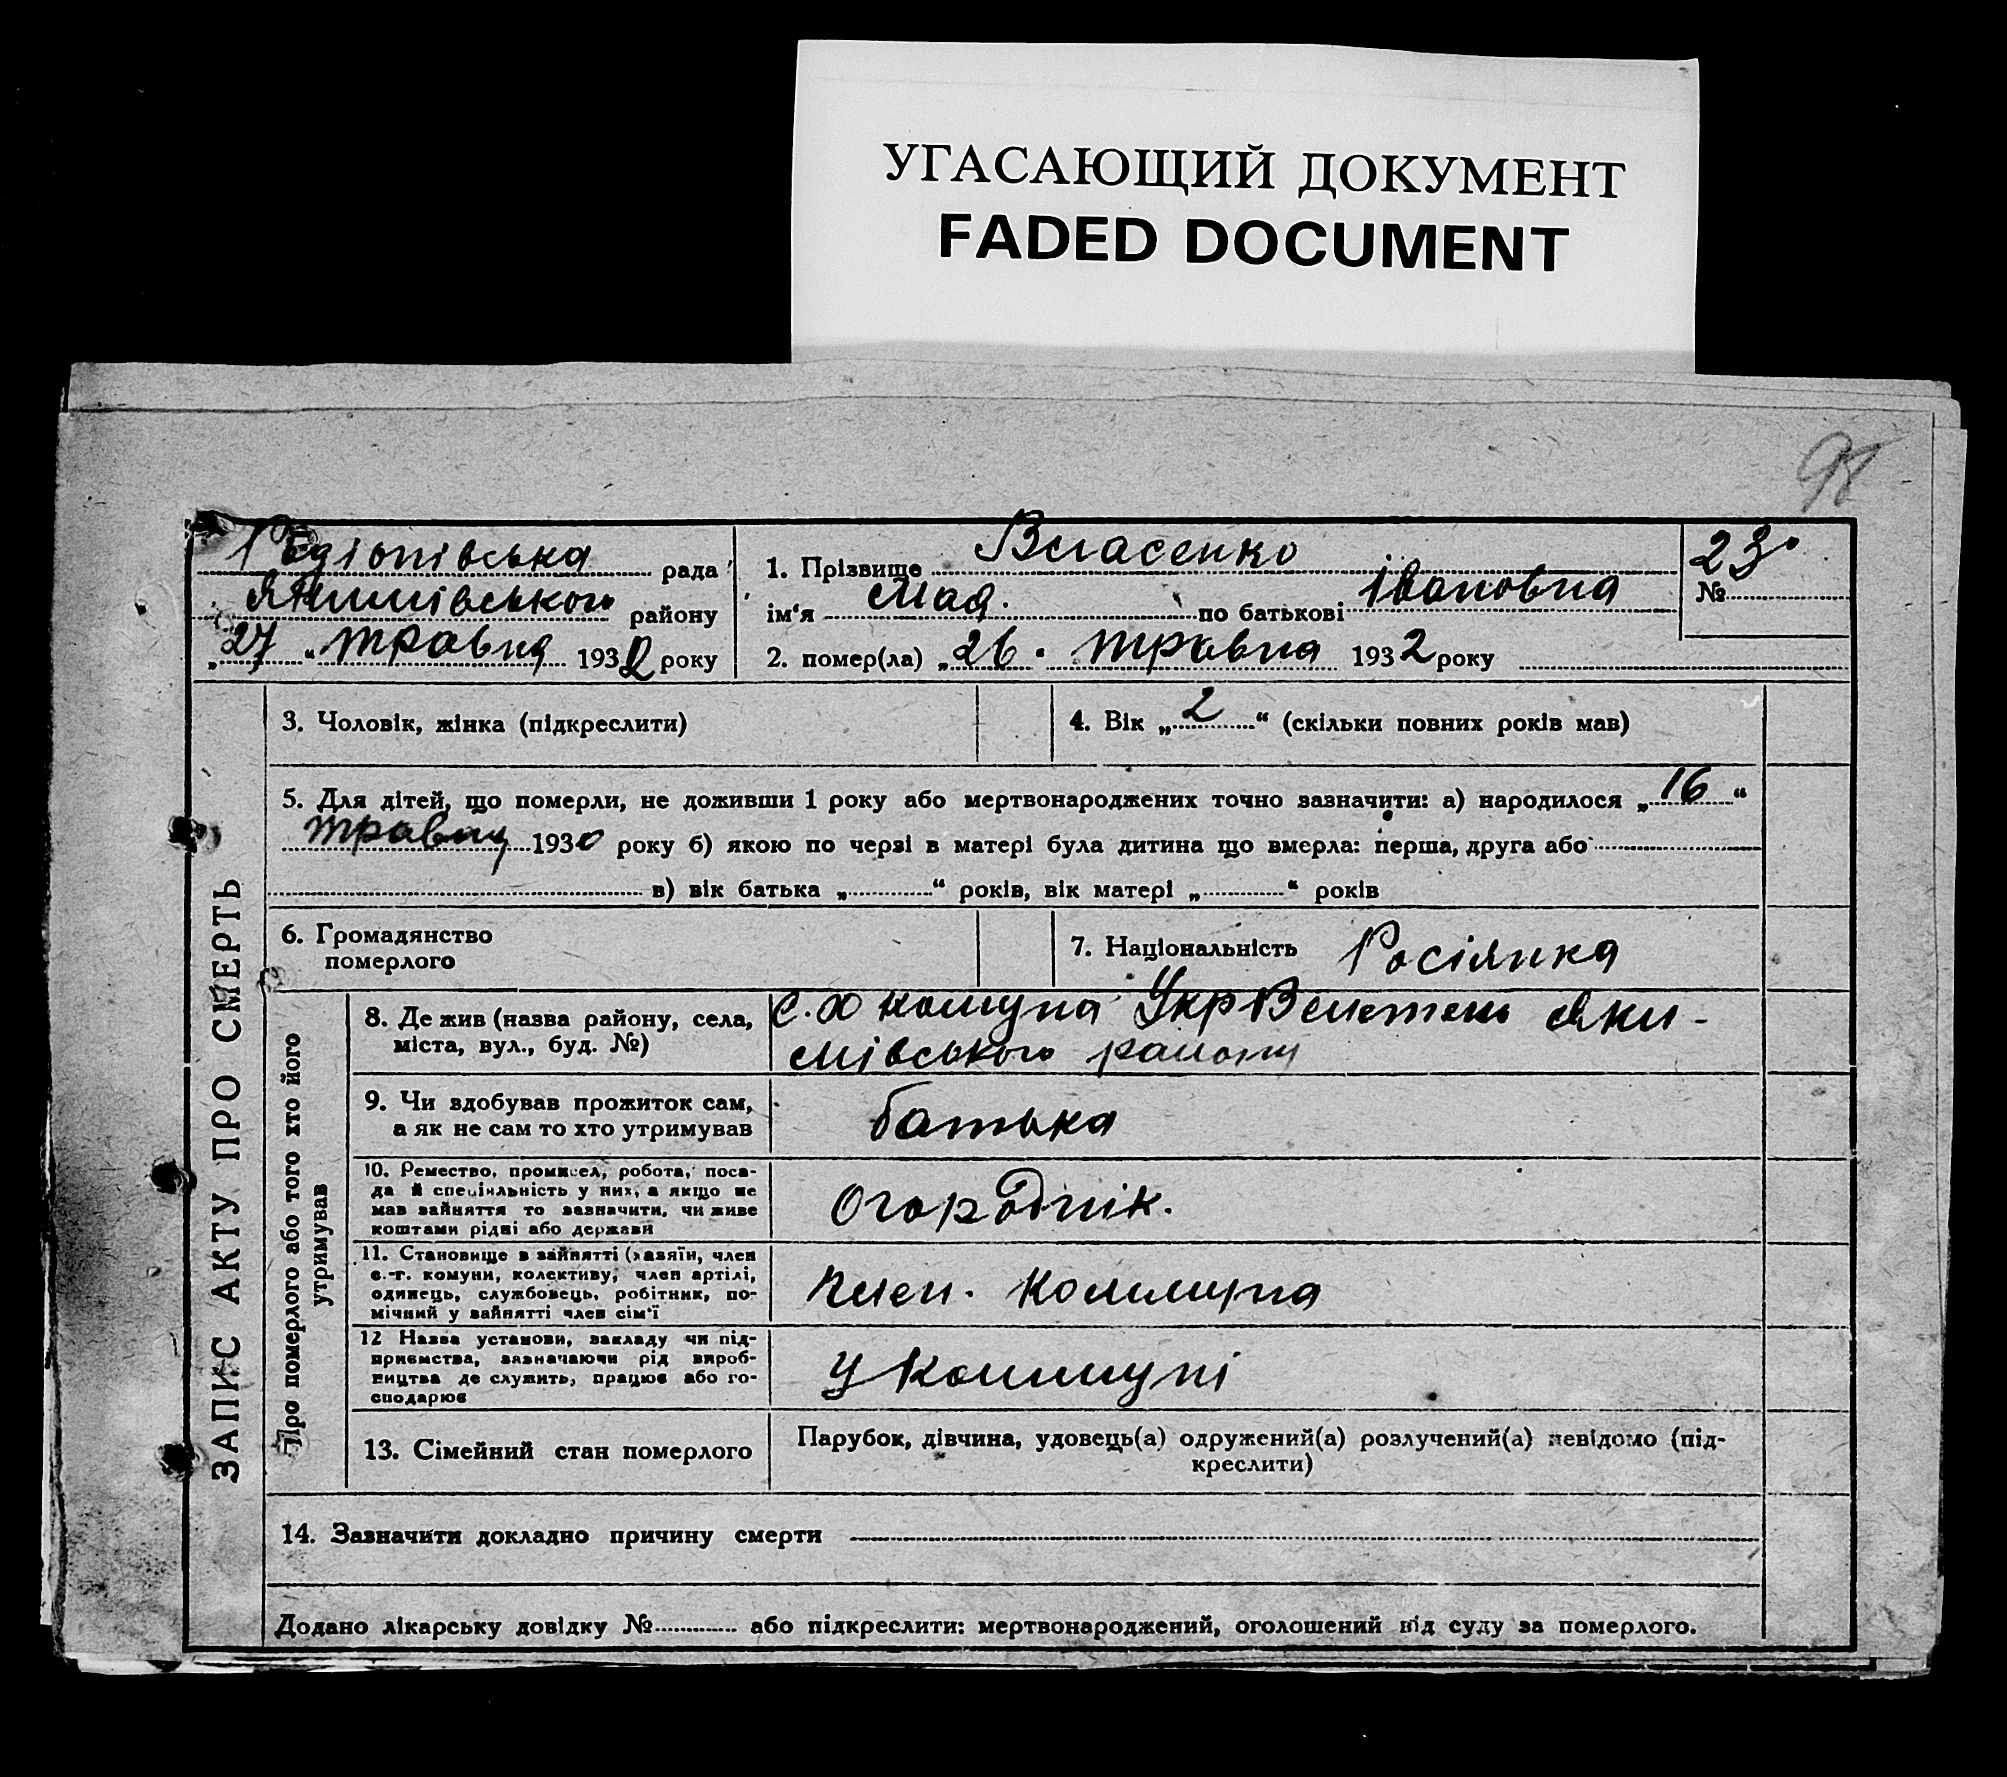 УГАСАЮЩИЙ ДОКУМЕНТ
FADED DOCUMENT
98
Радіонівська рада
Якимівського району
„27“ травня 1932 року
1. Прізвище Власенко
ім‘я Мая. по батькові Івановна
2. помер(ла) „26. травня 1932 року
№ 23
ЗАПИС АКТУ ПРО СМЕРТЬ
3. Чоловік, жінка (підкреслити)
4. Вік „2“ (скільки повних років мав)
5. Для дітей, що померли, не доживши 1 року або мертвонароджених точно зазначити: а) народилося „16“
травня 1930 року б) якою по черзі в матері була дитина що вмерла: перша, друга або
в) вік батька „ “ років, вік матері „ “ років
6. Громадянство
померлого
7. Національність Росіянка
Про померлого або того хто його
утримував
8. Де жив (назва району, села,
міста, вул., буд. №)
с.х комуна Яки-
мівського району
9. Чи здобував прожиток сам,
а як не сам то хто утримував
батька
10. Ремество, промисел, робота, поса-
да й спеціяльність у них, а якщо не
мав зайняття то зазначити, чи живе
коштами рідні або держави
Огороднік.
11. Становище в зайнятті (хазяїн, член
с.-г. комуни, колективу, член артілі,
одинець, службовець, робітник, по-
мічний у зайнятті член сім'ї
член. коммуна
12 Назва установи, закладу чи під-
приємства, зазначаючи рід вироб-
ництва де служить, працює або го-
сподарює
у коммуні
13. Сімейний стан померлого
Парубок, дівчина, удовець(а) одружений(а) розлучений(а) невідомо (під-
креслити)
14. Зазначити докладно причину смерти
Додано лікарську довідку № або підкреслити: мертвонароджений, оголошений від суду за померлого.